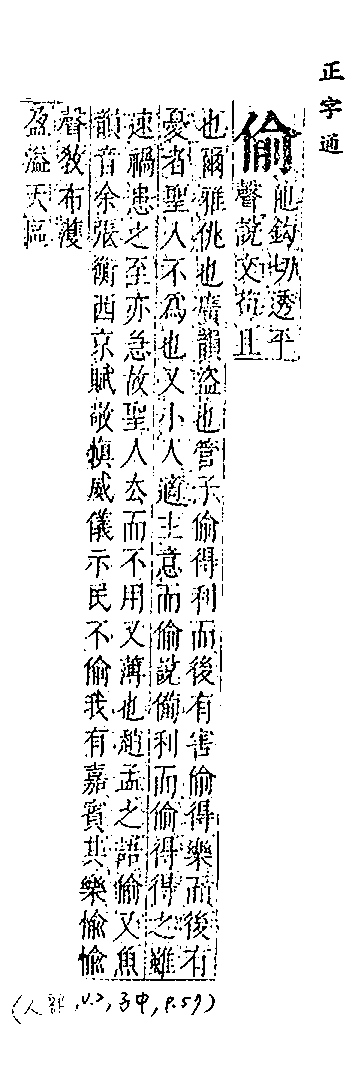 正字通
偷 他鈎切透平
聲說文苟且
也爾雅佻也廣韻盜也管子偷得利而後有害偷得樂而後有
憂者聖人不為也又小人適主意而偷說備利而偷得得之雖
速禍患之至亦急故聖人去而不用又薄也趙孟之語偷又魚
韻音余張衡西京賦敬慎威儀示民不偷我有嘉賓其樂愉愉
聲教布濩
盈溢天區
(人部, 子中, P.59)